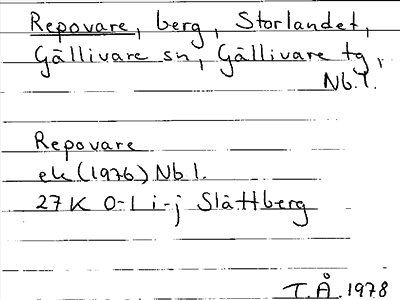 Repovare, berg, Storlandet,
Gällivare sn, Gällivare tg,
Nb.l.
Repovare
ek (1976) Nb l.
27 K 0-1 i-j Slättberg
T.Å. 1978